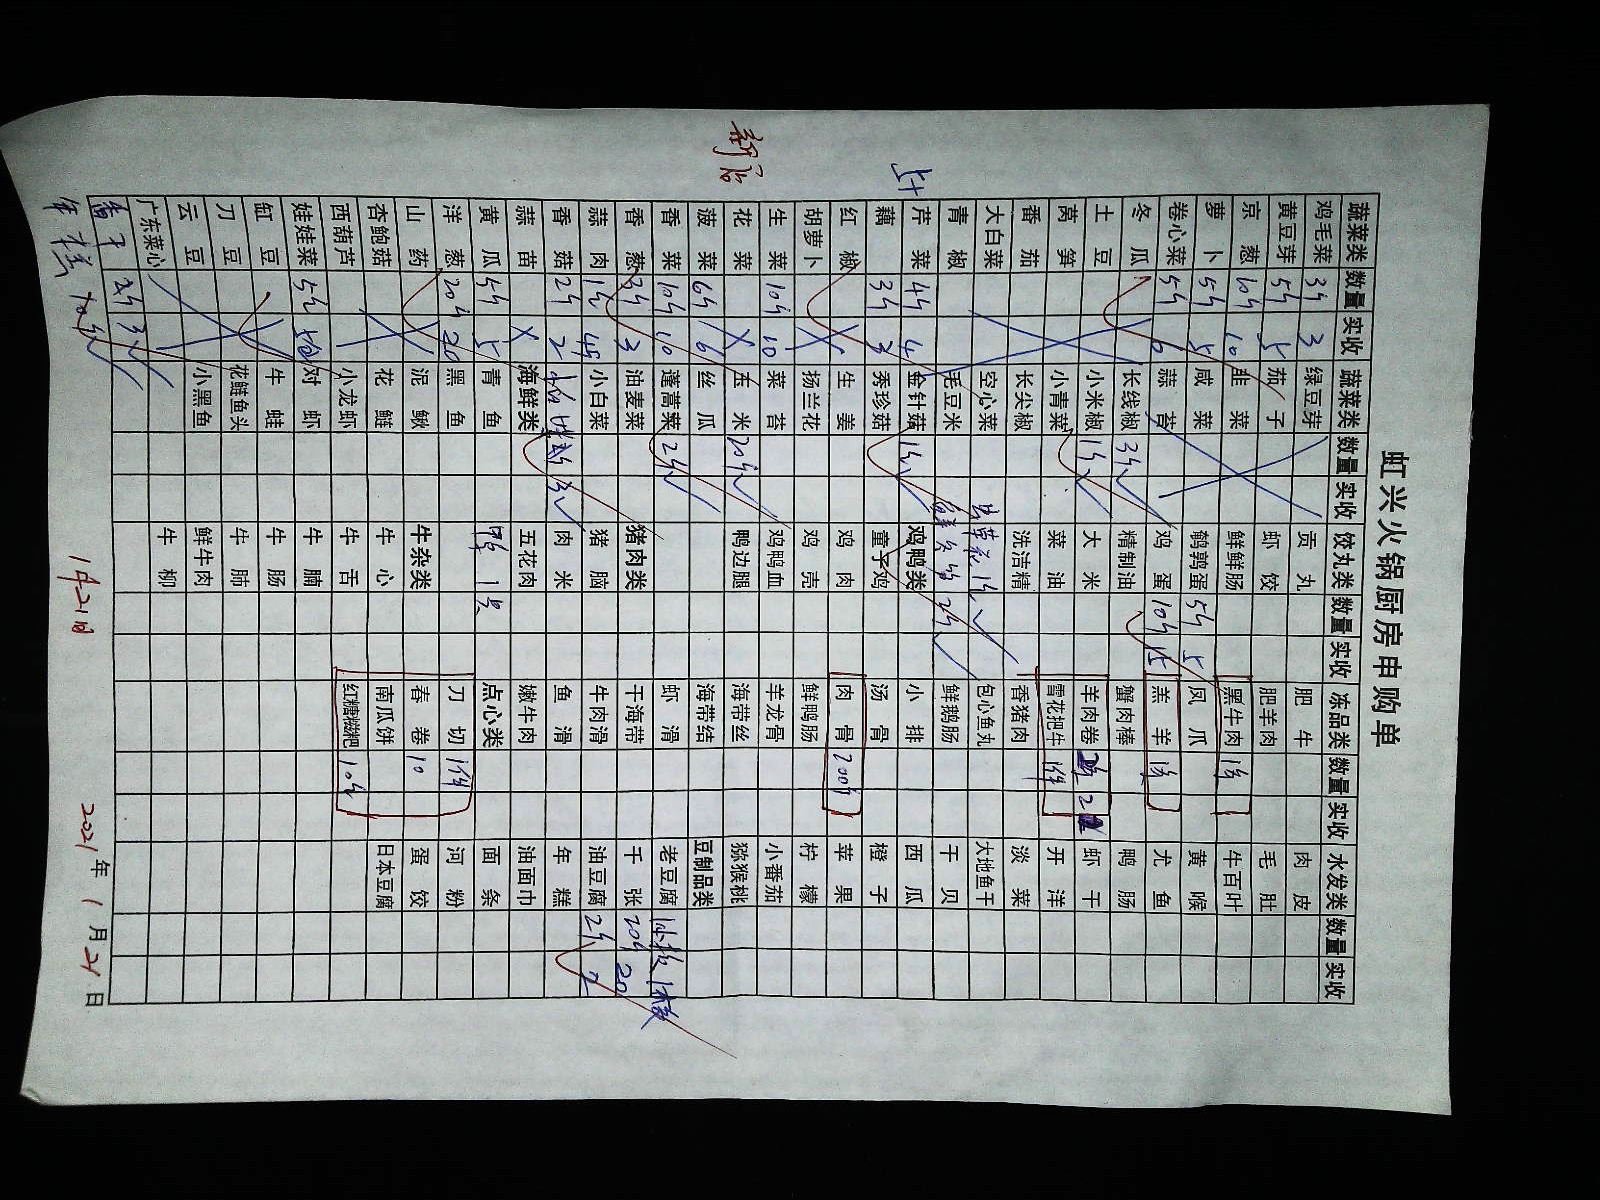 虹兴火锅厨房申购单
新店
蔬菜类 数量 实收 蔬菜类 数量 实收 饺丸类 数量 实收 冻品类 数量 实收 水发类 数量 实收
鸡毛菜 3斤 3 绿豆芽 贡丸 肥牛 肉皮
黄豆芽 5斤 5 茄子 虾饺 肥羊肉 毛肚
京葱 10斤 10 韭菜 鲜鲜肠 黑牛肉 牛百叶
萝卜 5斤 5 咸菜 鹌鹑蛋 5斤 5 凤爪 黄喉
卷心菜 5斤 6 蒜苔 鸡蛋 10斤 15 羔羊 尤鱼
冬瓜 长线椒 3斤 精制油 蟹肉棒 鸭肠
土豆 小米椒 1斤 大米 羊肉卷 2 虾干
莴笋 小青菜 菜油 雪花把牛 1件 开洋
番茄 长尖椒 洗洁精 香猪肉 淡菜
大白菜 空心菜 包心鱼丸 大地鱼干
青椒 毛豆米 鲜鹅肠 干贝
芹菜 4斤 4 金针菇 1斤 鸡鸭类 小排 西瓜
藕 3斤 3 秀珍菇 童子鸡 汤骨 橙子
红椒 生姜 鸡肉 肉骨 200斤 苹果
胡萝卜 扬兰花 鸡壳 鲜鸭肠 柠檬
生菜 10斤 10 菜苔 鸡鸭血 羊龙骨 小番茄
花菜 玉米 20斤 鸭边腿 海带丝 猕猴桃
菠菜 6斤 6 丝瓜 海带结 豆制品类
香菜 10斤 10 蓬蒿菜 2斤 虾滑 老豆腐
香葱 3斤 3 油麦菜 猪肉类 干海带 千张 20斤 20
蒜肉 1斤 小白菜 猪脑 牛肉滑 油豆腐 2斤 2
香菇 2斤 2 肉米 鱼滑 年糕
蒜苗 海鲜类 五花肉 嫩牛肉 油面巾
黄瓜 5斤 5 青鱼 点心类 面条
洋葱 20斤 20 黑鱼 刀切 1件 河粉
山药 泥鳅 牛杂类 春卷 10 蛋饺
杏鲍菇 花鲢 牛心 南瓜饼 日本豆腐
西葫芦 小龙虾 牛舌 红糖糍粑 10斤
娃娃菜 5斤 对虾 牛腩
缸豆 牛蛙 牛肠
刀豆 花鲢鱼头 牛肺
云豆 小黑鱼 鲜牛肉
广东菜心 牛柳
香干 2斤 3斤
年糕 10斤
1月21日 2021年1月21日